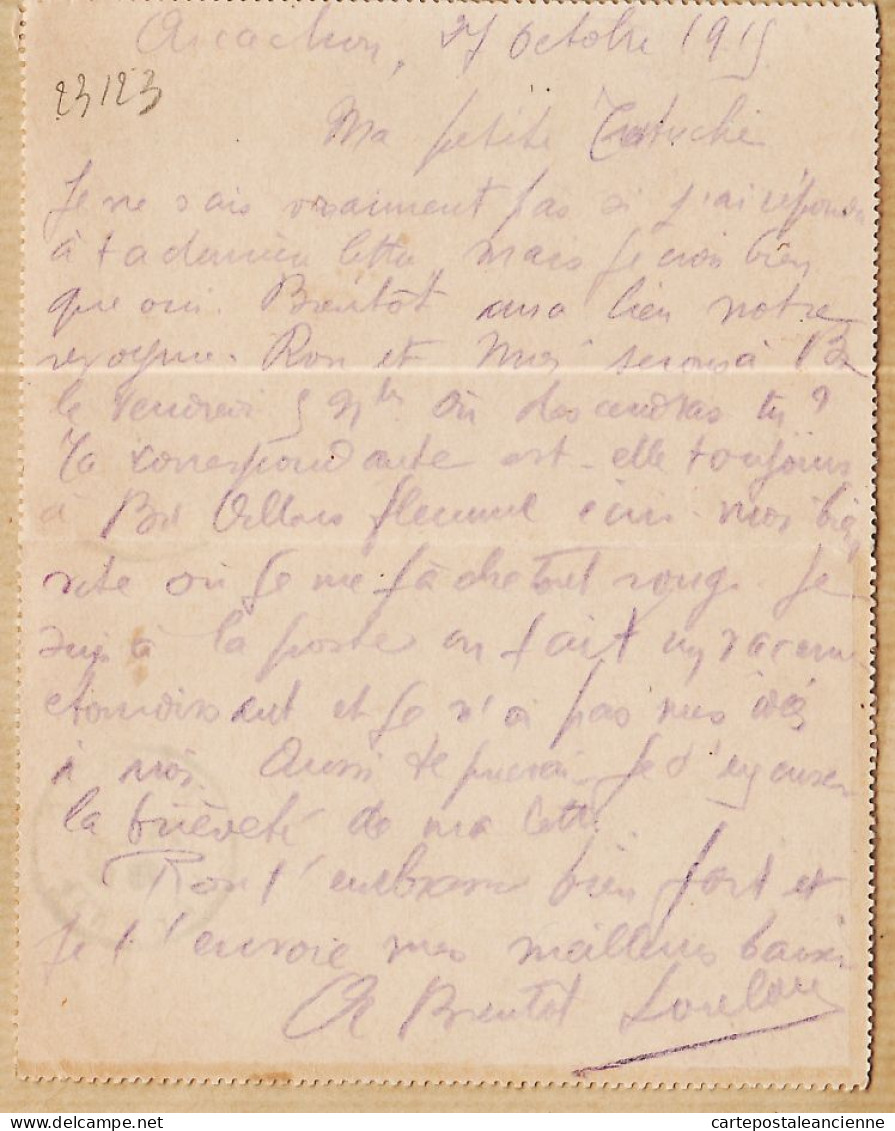 Arcachon, 27 Octobre 1915
23123
Ma petite
Je ne sais vraiment pas si j'ai répondu
à ta dernière lettre, mais je crois bien
que oui. Bientôt aura lieu notre
Ron et Moi serons à Bx
le vendredi 5 9bre où descendras tu ?
Ta correspondante est-elle toujours
à Bx Allons flemme écris-moi bien
vite où je me fâche tout rouge. Je
suis à la poste on fait un vacarme
étourdissant et je n'ai pas mes idées
à moi. Aussi te prierai-je d'excuser
la brièveté de ma lettre.
Ron t'embrasse bien fort et
Je t'envoie mes meilleurs baisers
A Bientôt Loulou
cartepostaleancienne